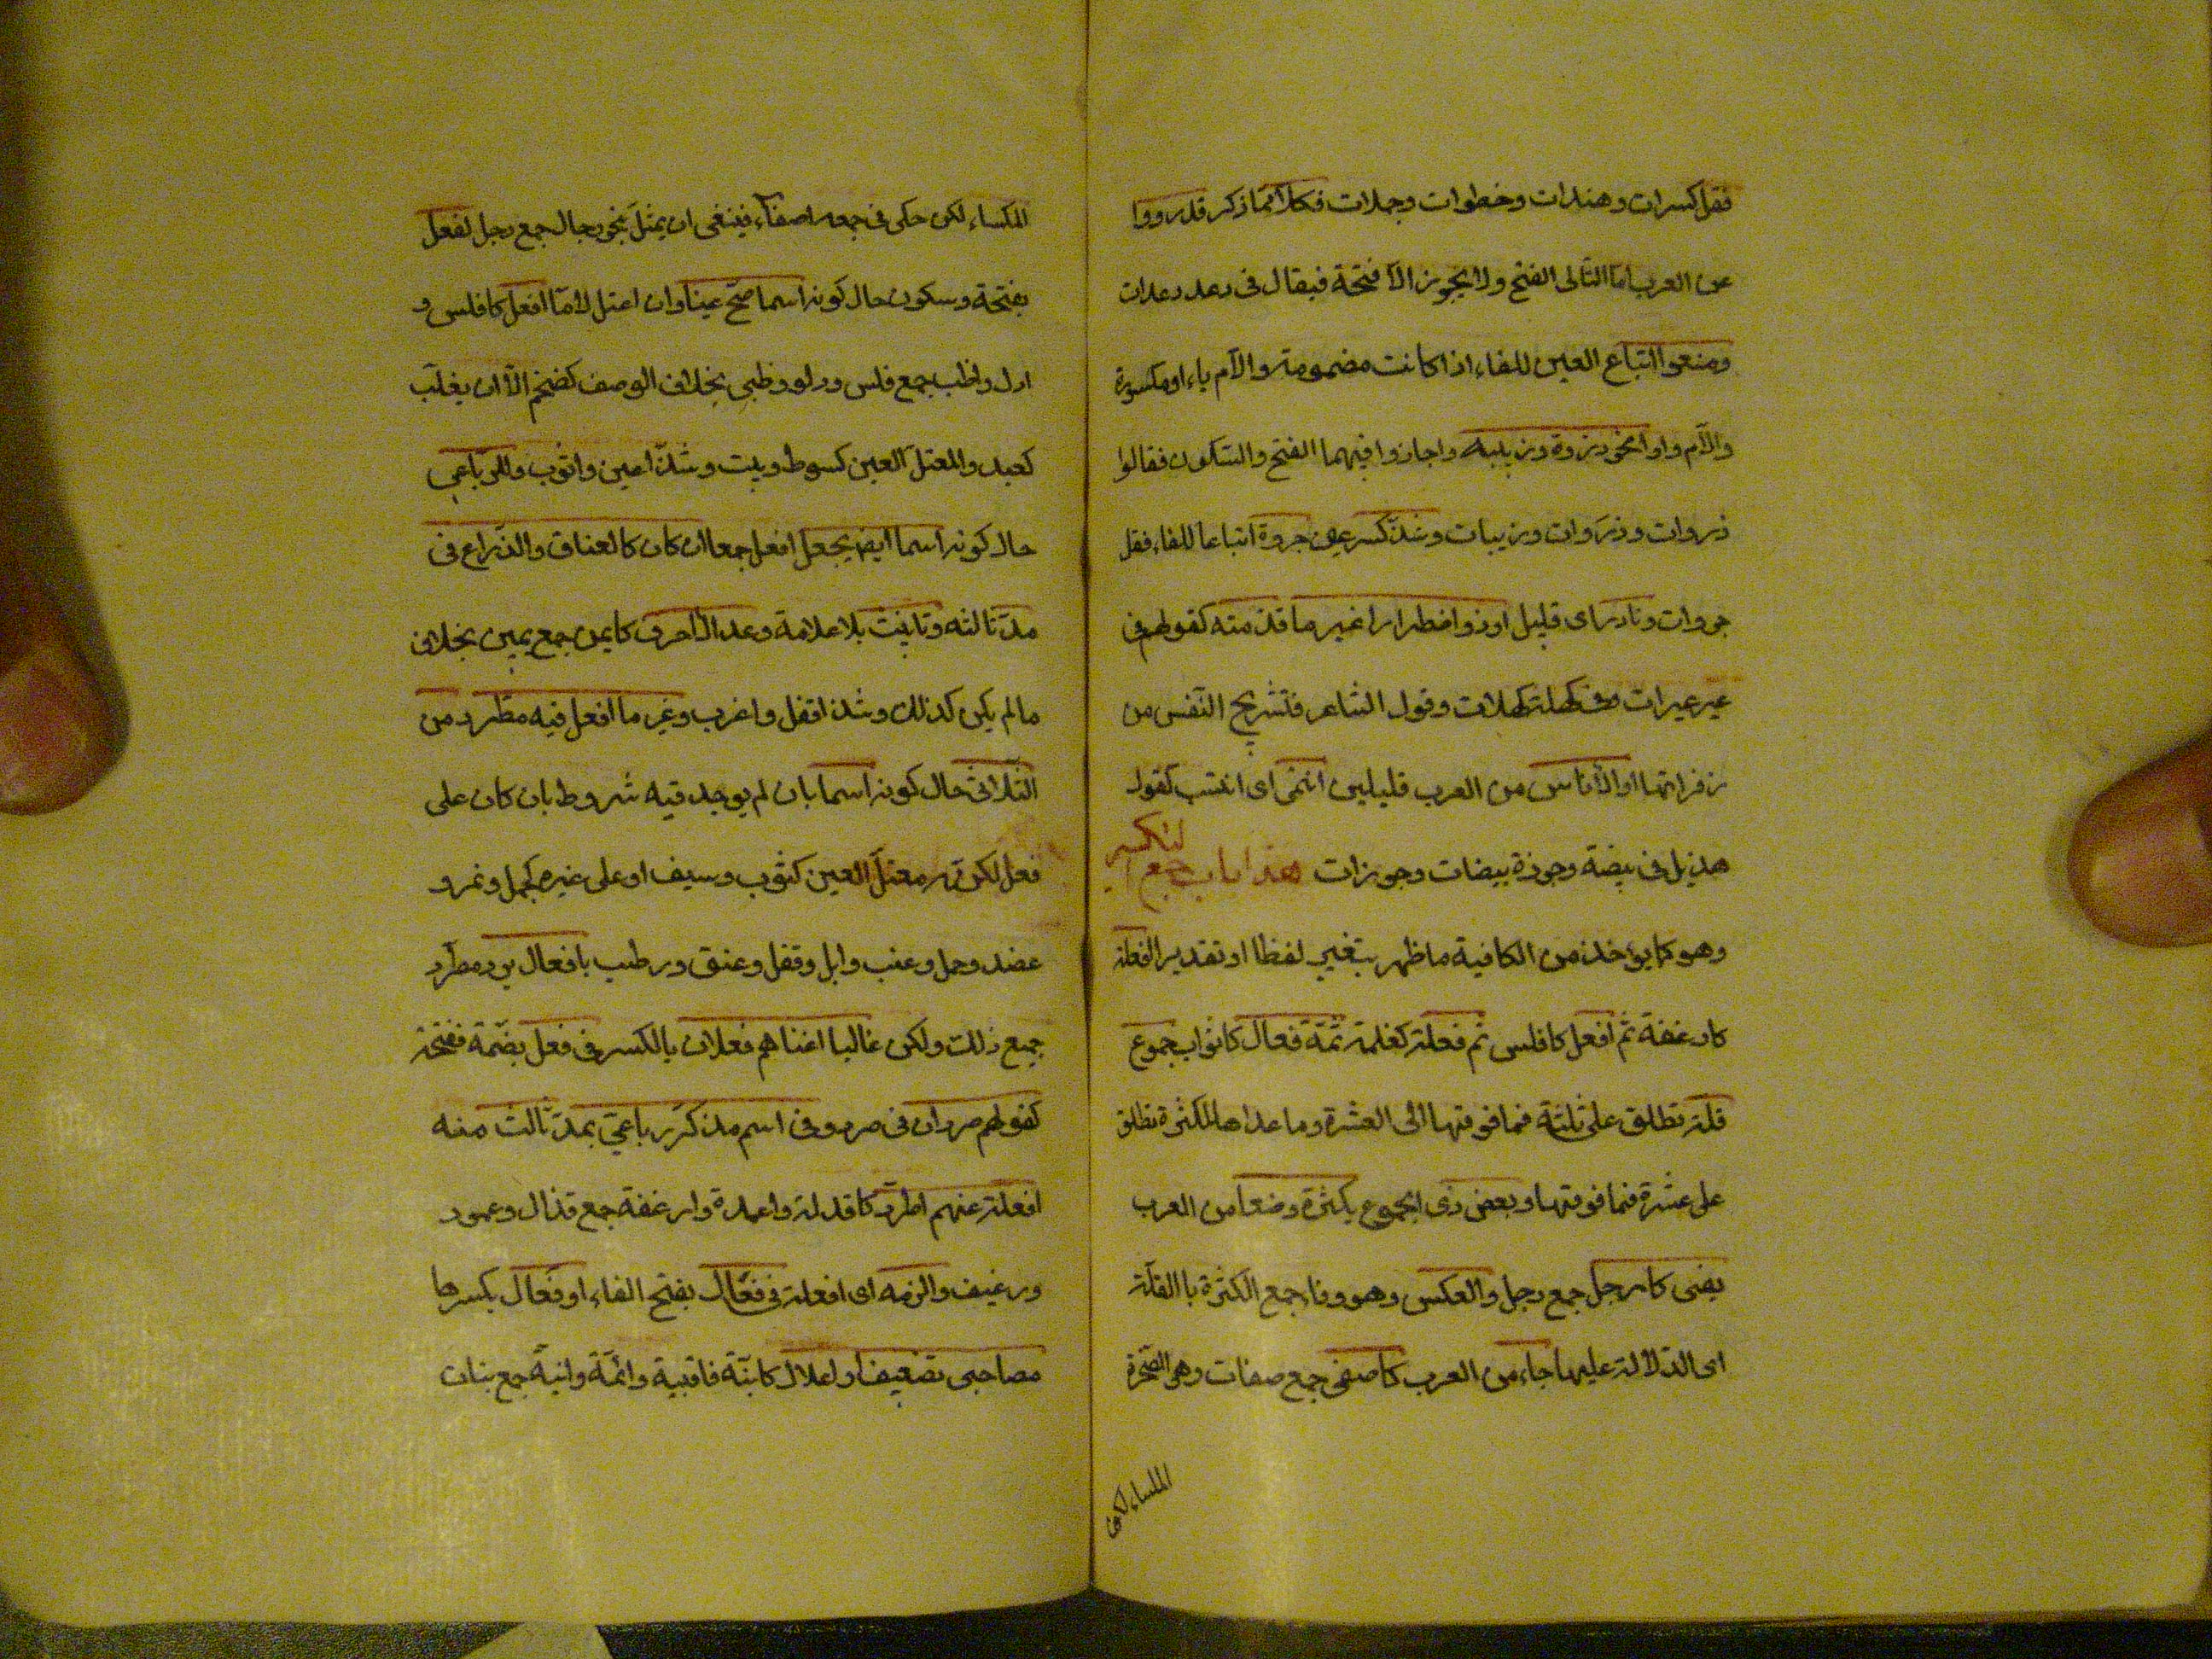 فقل كسرات وهندات وخطوات وجملات فكلا مما ذكر قد رووا
عن العرب اما التالى الفتح ولا يجوز الا فتحة فيقال فى دعد دعدات
ومنعوا اتباع العين للفاء اذا كانت مضمومة والام ياء او مكسورة
والام واوا نحو ذروة وزبية واجازوا فيهما الفتح والسكون فقالوا
ذروات وذروات وزبيات وشذ كسر عين جروة اتباعا للفاء فقل
جروات ونادر اى قليل او ذو اضطرار غير ما قدمته كقولهم فى
عير عيرات وفى كهلة كهلات وقول الشاعر فتستريح النفس من
زفراتها او الأناس من العرب قليلين انتمى اى انتسب كقول
هذيل فى بيضة وجوزة بيضات وجوزات هذا باب جمع التكسير
وهو كما يؤخذ من الكافية ما ظهر بتغيير لفظا او تقديرا افعلة
كارغفة ثم افعل كافلس ثم فعلة كغلمة ثمة فعال كاثواب جموع
قلة تطلق على ثلثة فما فوقها الى العشرة وما عداها للكثرة تطلق
على عشرة فما فوقها وبعض ذى الجموع بكثرة وضعا من العرب
يفى كارجل جمع رجل والعكس وهو وفاء جمع الكثرة باالقلة
اى الدلالة عليها جاء من العرب كالصفى جمع صفات وهى الصخرة
الملساء لكن
الملساء لكن حكى فى جمعه اصفاء فينبغى ان يمثل بنحو رجال جمع رجل لفعل
بفتحة وسكون حال كونه اسما صح عينا وان اعتل لاما افعل كافلس و
ادل واظب جمع فلس ودلو وظبى بخلاف الوصف كضخم الا ان يغلب
كعبد والمعتل العين كسوط وبيت وشذ اعين واثوب وللرباعى
حال كونه اسما ايض يجعل افعل جمعا ان كان كالعناق والذراع فى
مد ثالثه وتانيث بلا علامة وعد الأحرف كايمن جمع يمين بخلاف
ما لم يكن كذلك وشذ اقفل واغرب وغير ما افعل فيه مطرد من
الثلاثى حال كونه اسما بان لم يوجد فيه شروط بان كان على
فعل لكنه معتل العين كثوب وسيف او على غيره كجمل ونمر و
عضد وحمل وعنب وابل وقفل وعنق ورطب بافعال يرد مطرد
جمع ذلك ولكن غالبا اغناهم فعلان بالكسر فى فعل بضمة ففتحة
كقولهم صردان فى صرد وفى اسم مذكر رباعى بمد ثالث منه
افعلة عنهم اطرد كاقذلة واعمدة وارغفة جمع قذال وعمود
ورغيف والزمه اى افعلة فى فعال بفتح الفاء او فعال بكسرها
مصاحبى تضعيف او اعلال كابتة فاقبية وائمة وانية جمع بتات